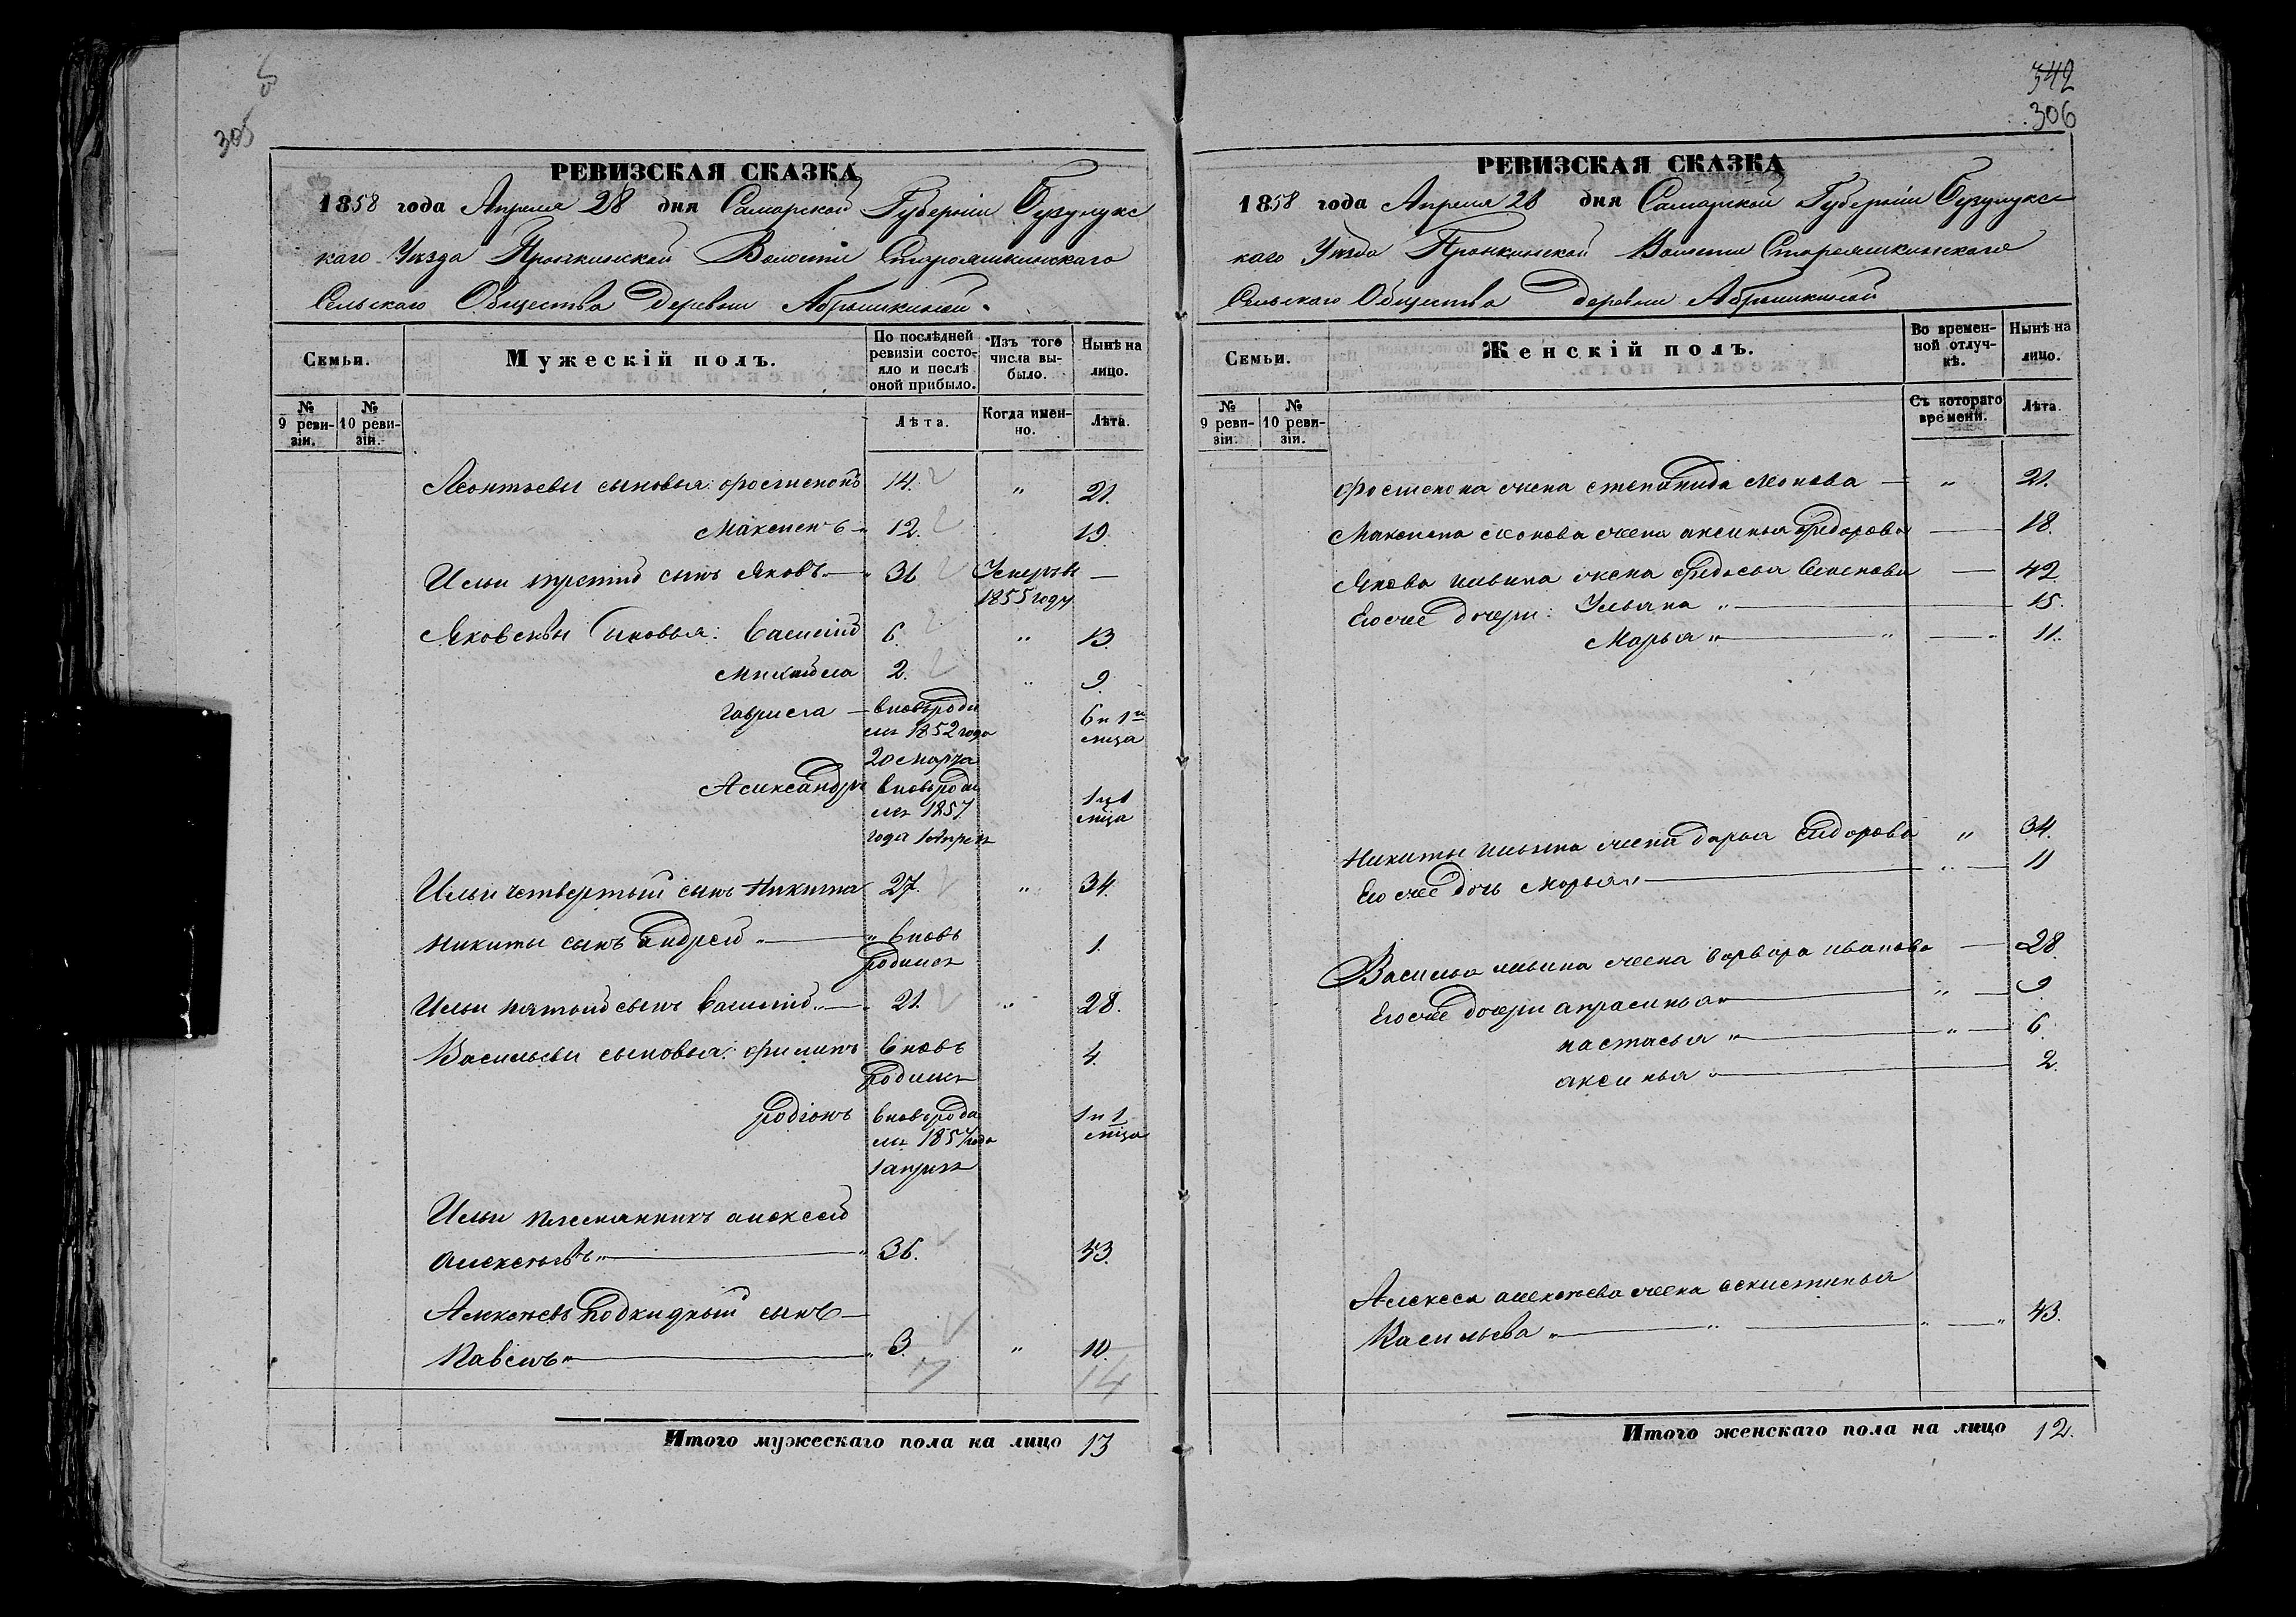 305
РЕВИЗСКАЯ СКАЗКА
1858 года Апреля 28 дня Самарской Губернiи Бузулукс
каго Уѣзда Пронкинской Волости Старояшкинскаго
Сельскаго Общества Деревни Аброшкиной
Семьи.
Мужескiй полъ.
По послѣдней ревизiи состояло и послѣ оной прибыло.
Изъ того числа выбыло.
Нынѣ на лицо.
№ 9 ревизiи.
№ 10 ревизiи.
Лѣта.
Когда именно.
Лѣта.
Леонтьевы сыновья: 14. " 21.
Максимъ 12. 19.
Ильи третiй сынъ Яковъ 36 Умеръ въ —
1855 году
Яковлевы сыновья: Василiй 6. " 13.
Михайла 2. " 9.
Гаврила вновь роди 6 и 1н
лся 1852 года мца
20 марта
Александръ вновь роди 1 и 1
лся 1857 мца
года 1 апреля
Ильи четвертый сынъ Никита 27. " 34.
Никиты сынъ Андрей " вновь 1.
родился
Ильи пятый сынъ Василiй 21. " 28.
Васильевы сыновья: филипъ вновь 4.
родился
родiонъ вновь роди 1 и 1
лся 1857 года мца
1 апреля
Ильи племянникъ алексей
алексеевъ 36. 43.
Алексеевъ Подкидный сынъ
Павелъ 3. " 10.
7 14
Итого мужескаго пола на лицо 13
342
306
РЕВИЗСКАЯ СКАЗКА
1858 года Апреля 28 дня Самарской Губернiи Бузулукс
каго Уѣзда Пронкинской Волости Старояшкинскаго
Сельскаго Общества Деревни Аброшкиной
Семьи.
Женскiй полъ.
Во временной отлучкѣ.
Нынѣ на лицо.
№ 9 ревизiи.
№ 10 ревизiи.
Съ котораго времени.
Лѣта.
жена степанида " 21.
Максима жена аксинья федорова 18.
Якова ильина жена федосья Семенова 42.
Его же дочери: Ульяна " 15.
Марья " 11.
Никиты ильина жена дарья Сидорова " 34.
Его же дочь Марья " 11
Василья ильина жена варвара иванова 28
Его же дочери апрасинья " 9
настасья " 6.
аксинья 2.
Алексея алексеева жена
Васильева " 43.
Итого женскаго пола на лицо 12.